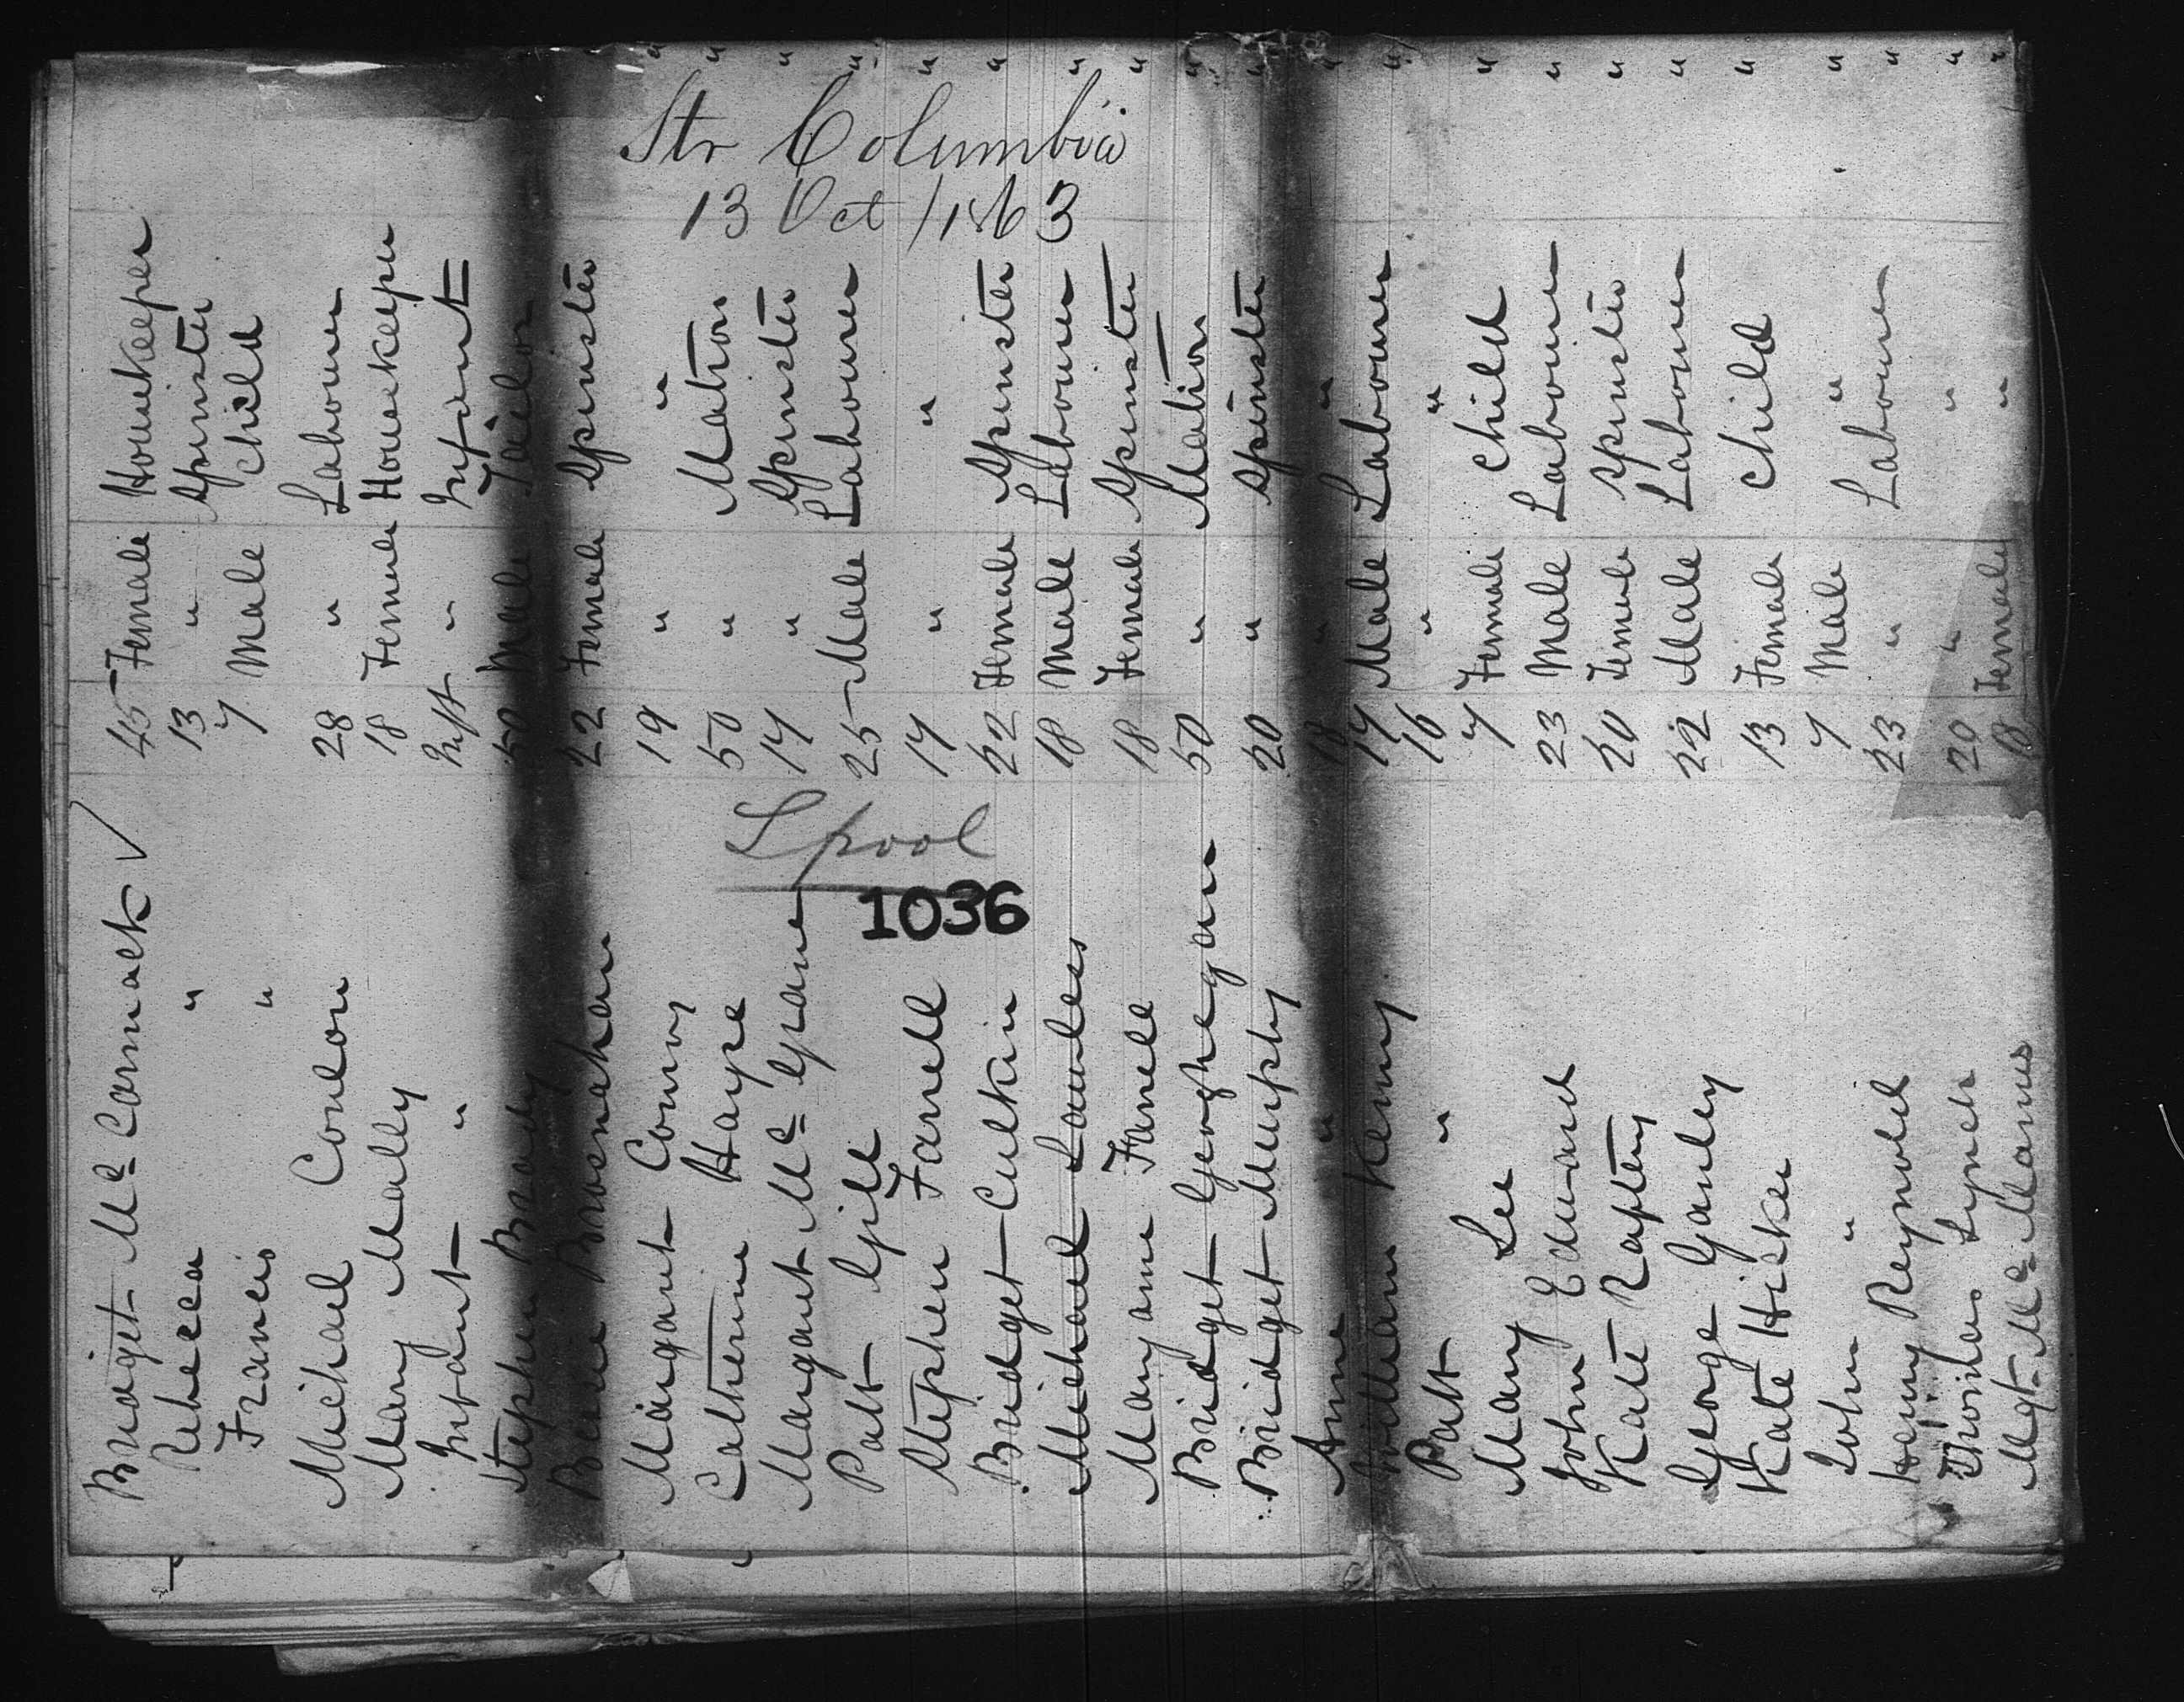 Str Columbia
13 Oct / 1863
Lpool
1036
Bridget Mc Cormack √ 45 Female Housekeeper
Rebecca " 13 " Spinster
Francis " 7 Male Child
Michael Conlon 28 " Labourer
Mary Mally 18 Female Housekeeper
Infant " Inft " Infant
Stephen Brady 50 Male Tailor
Brosnahan 22 Female Spinster
Margaret Conroy 19 " "
Catherine Hayse 50 " Matron
Margaret Mc Grane 17 " Spinster
Patk Gill 25 Male Labourer
Stephen Farrell 17 " "
Bridget Culkin 22 Female Spinster
Michael Lawless 18 Male Labourer
Maryanne Farrell 18 Female Spinster
Bridget Geoghegan 50 " Matron
Bridget Murphy 20 " Spinster
Anne " 18 " "
William Kenny 17 Male Labourer
Patk " 16 " "
Mary Lee 7 Female Child
John Edward 23 Male Labourer
Kate Raftery 20 Female Spinster
George Ganley 22 Male Labourer
Kate Hickey 13 Female Child
John " 7 Male "
Henry Reynolds 23 " Labourer
Thomas Lynch 20 " "
Mgt Mc Manus 18 Female "